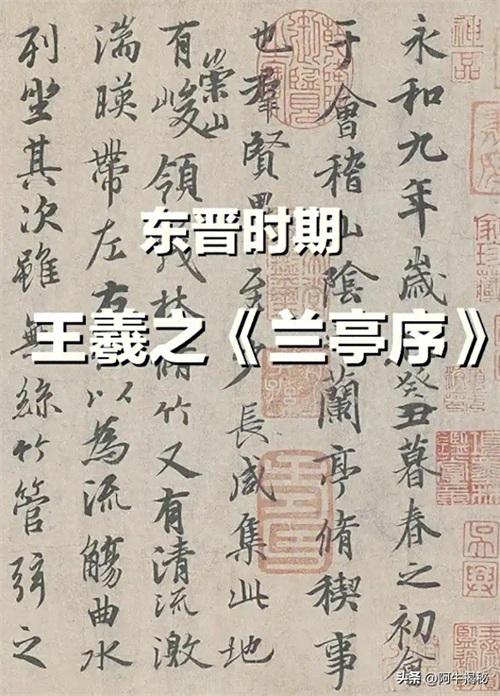 东晋时期
王羲之《兰亭序》
永和九年歲癸丑暮春之初會
于會稽山陰蘭亭脩稧事
也羣賢畢至少長咸集此地
有崇山峻領茂林脩竹又有清流激
湍暎帶左右以為流觴曲水
列坐其次雖無絲竹管弦之
神品
头条 @阿牛揭秘